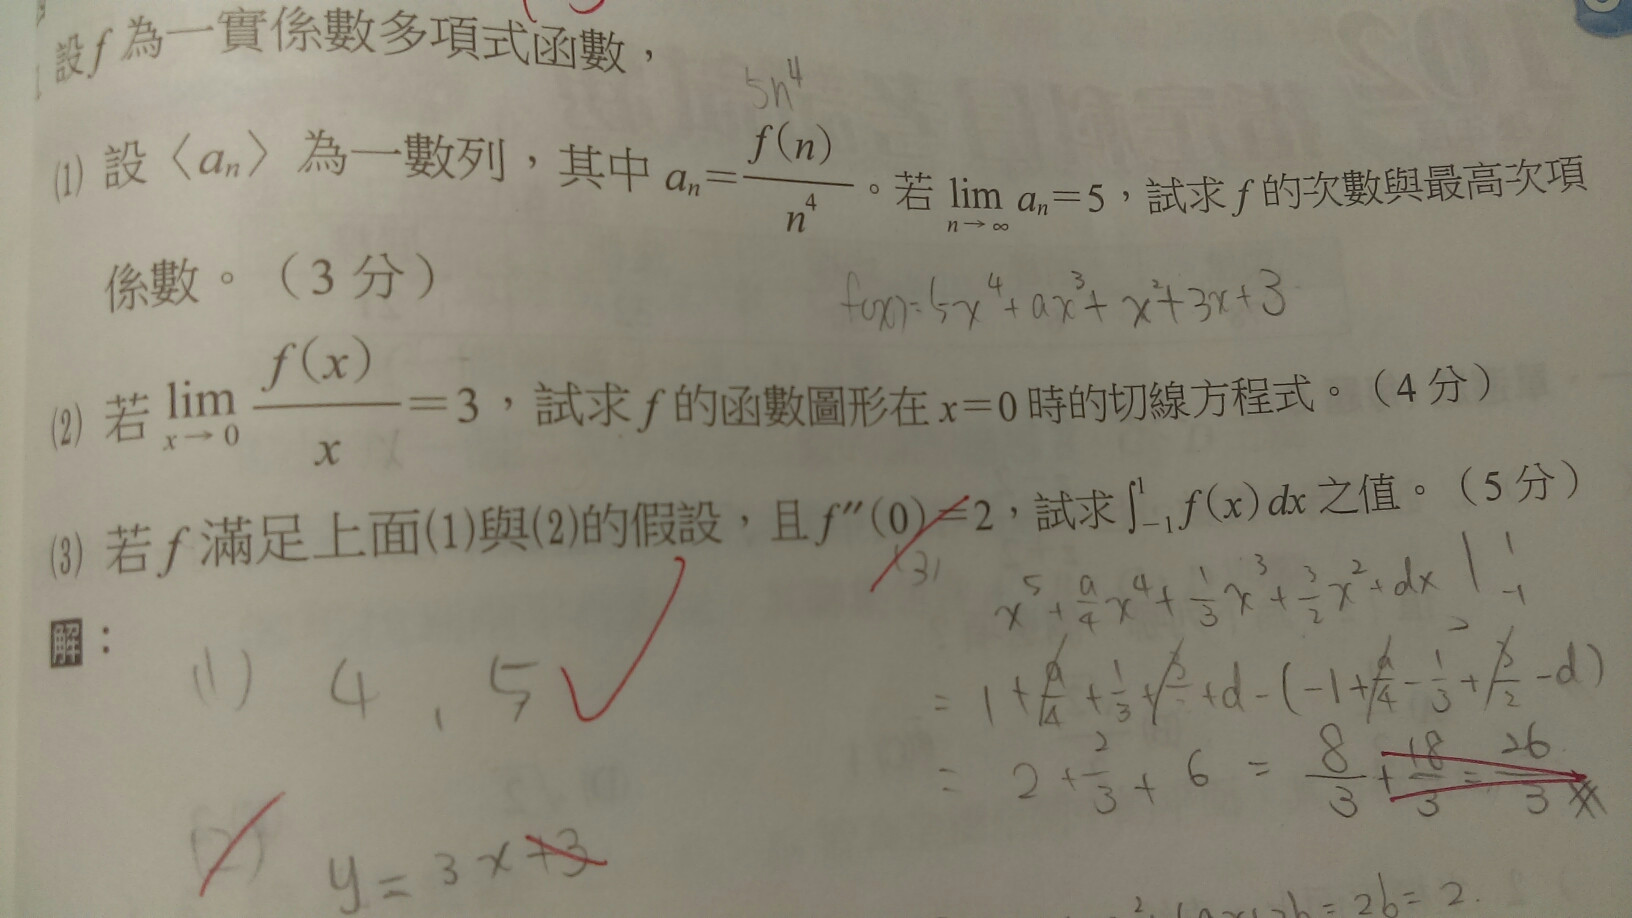 設f為一實係數多項式函數，
5n⁴
(1) 設〈aₙ〉為一數列，其中 aₙ=f(n)/n⁴。若 lim n→∞ aₙ=5，試求f的次數與最高次項
係數。（3分）
f(x)=5x⁴+ax³+x²+3x+3
(2) 若 lim x→0 f(x)/x=3，試求f的函數圖形在x=0時的切線方程式。（4分）
(3) 若f滿足上面(1)與(2)的假設，且f″(0)=2，試求∫₋₁¹ f(x)dx之值。（5分）
(3)
x⁵+a/4x⁴+1/3x³+3/2x²+dx |¹₋₁
解：
(1) 4，5
=1+a/4+1/3+3/2+d-(-1+a/4-1/3+3/2-d)
=2+2/3+6=8/3+18/3=26/3
(2) y=3x+3
=2b=2.